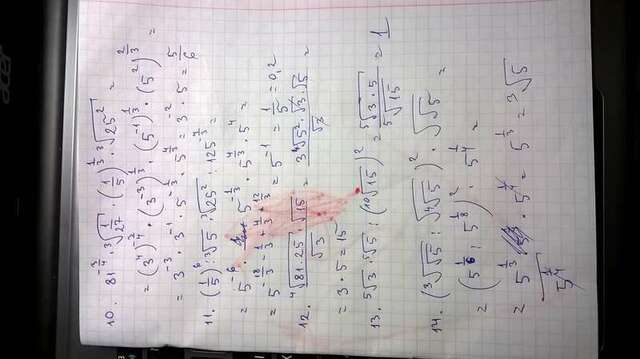 acer
10. 81^(-3/4) · ³√(1/27) · (1/5)^(1/3) · ³√(25²) =
= (3⁴)^(-3/4) · (3⁻³)^(1/3) · (5⁻¹)^(1/3) · (5²)^(2/3) =
= 3⁻³ · 3⁻¹ · 5^(-1/3) · 5^(4/3) = 3⁻² · 5 = 5/6
11. (1/5)⁶ : ³√5 · ³√(25²) : 125^(-4/3) =
= 5⁻⁶ · 5^(-1/3) · 5^(4/3) · 5⁴ =
= 5^(-18/3 - 1/3 + 4/3 + 12/3) = 5⁻¹ = 1/5 = 0,2
12. (⁴√(81·25) · √15)/√3 = (3 ⁴√(5²) · √3 · √5)/√3 =
= 3 · 5 = 15
13. ⁵√3 · ⁵√5 : (¹⁰√15)² = ⁵√(3·5)/⁵√15 = 1
14. (³√√5 : √(⁴√5))² · √√5 =
= (5^(1/6) : 5^(1/8))² · 5^(1/4) =
= 5^(1/3)/5^(1/4) · 5^(1/4) = 5^(1/3) = ³√5